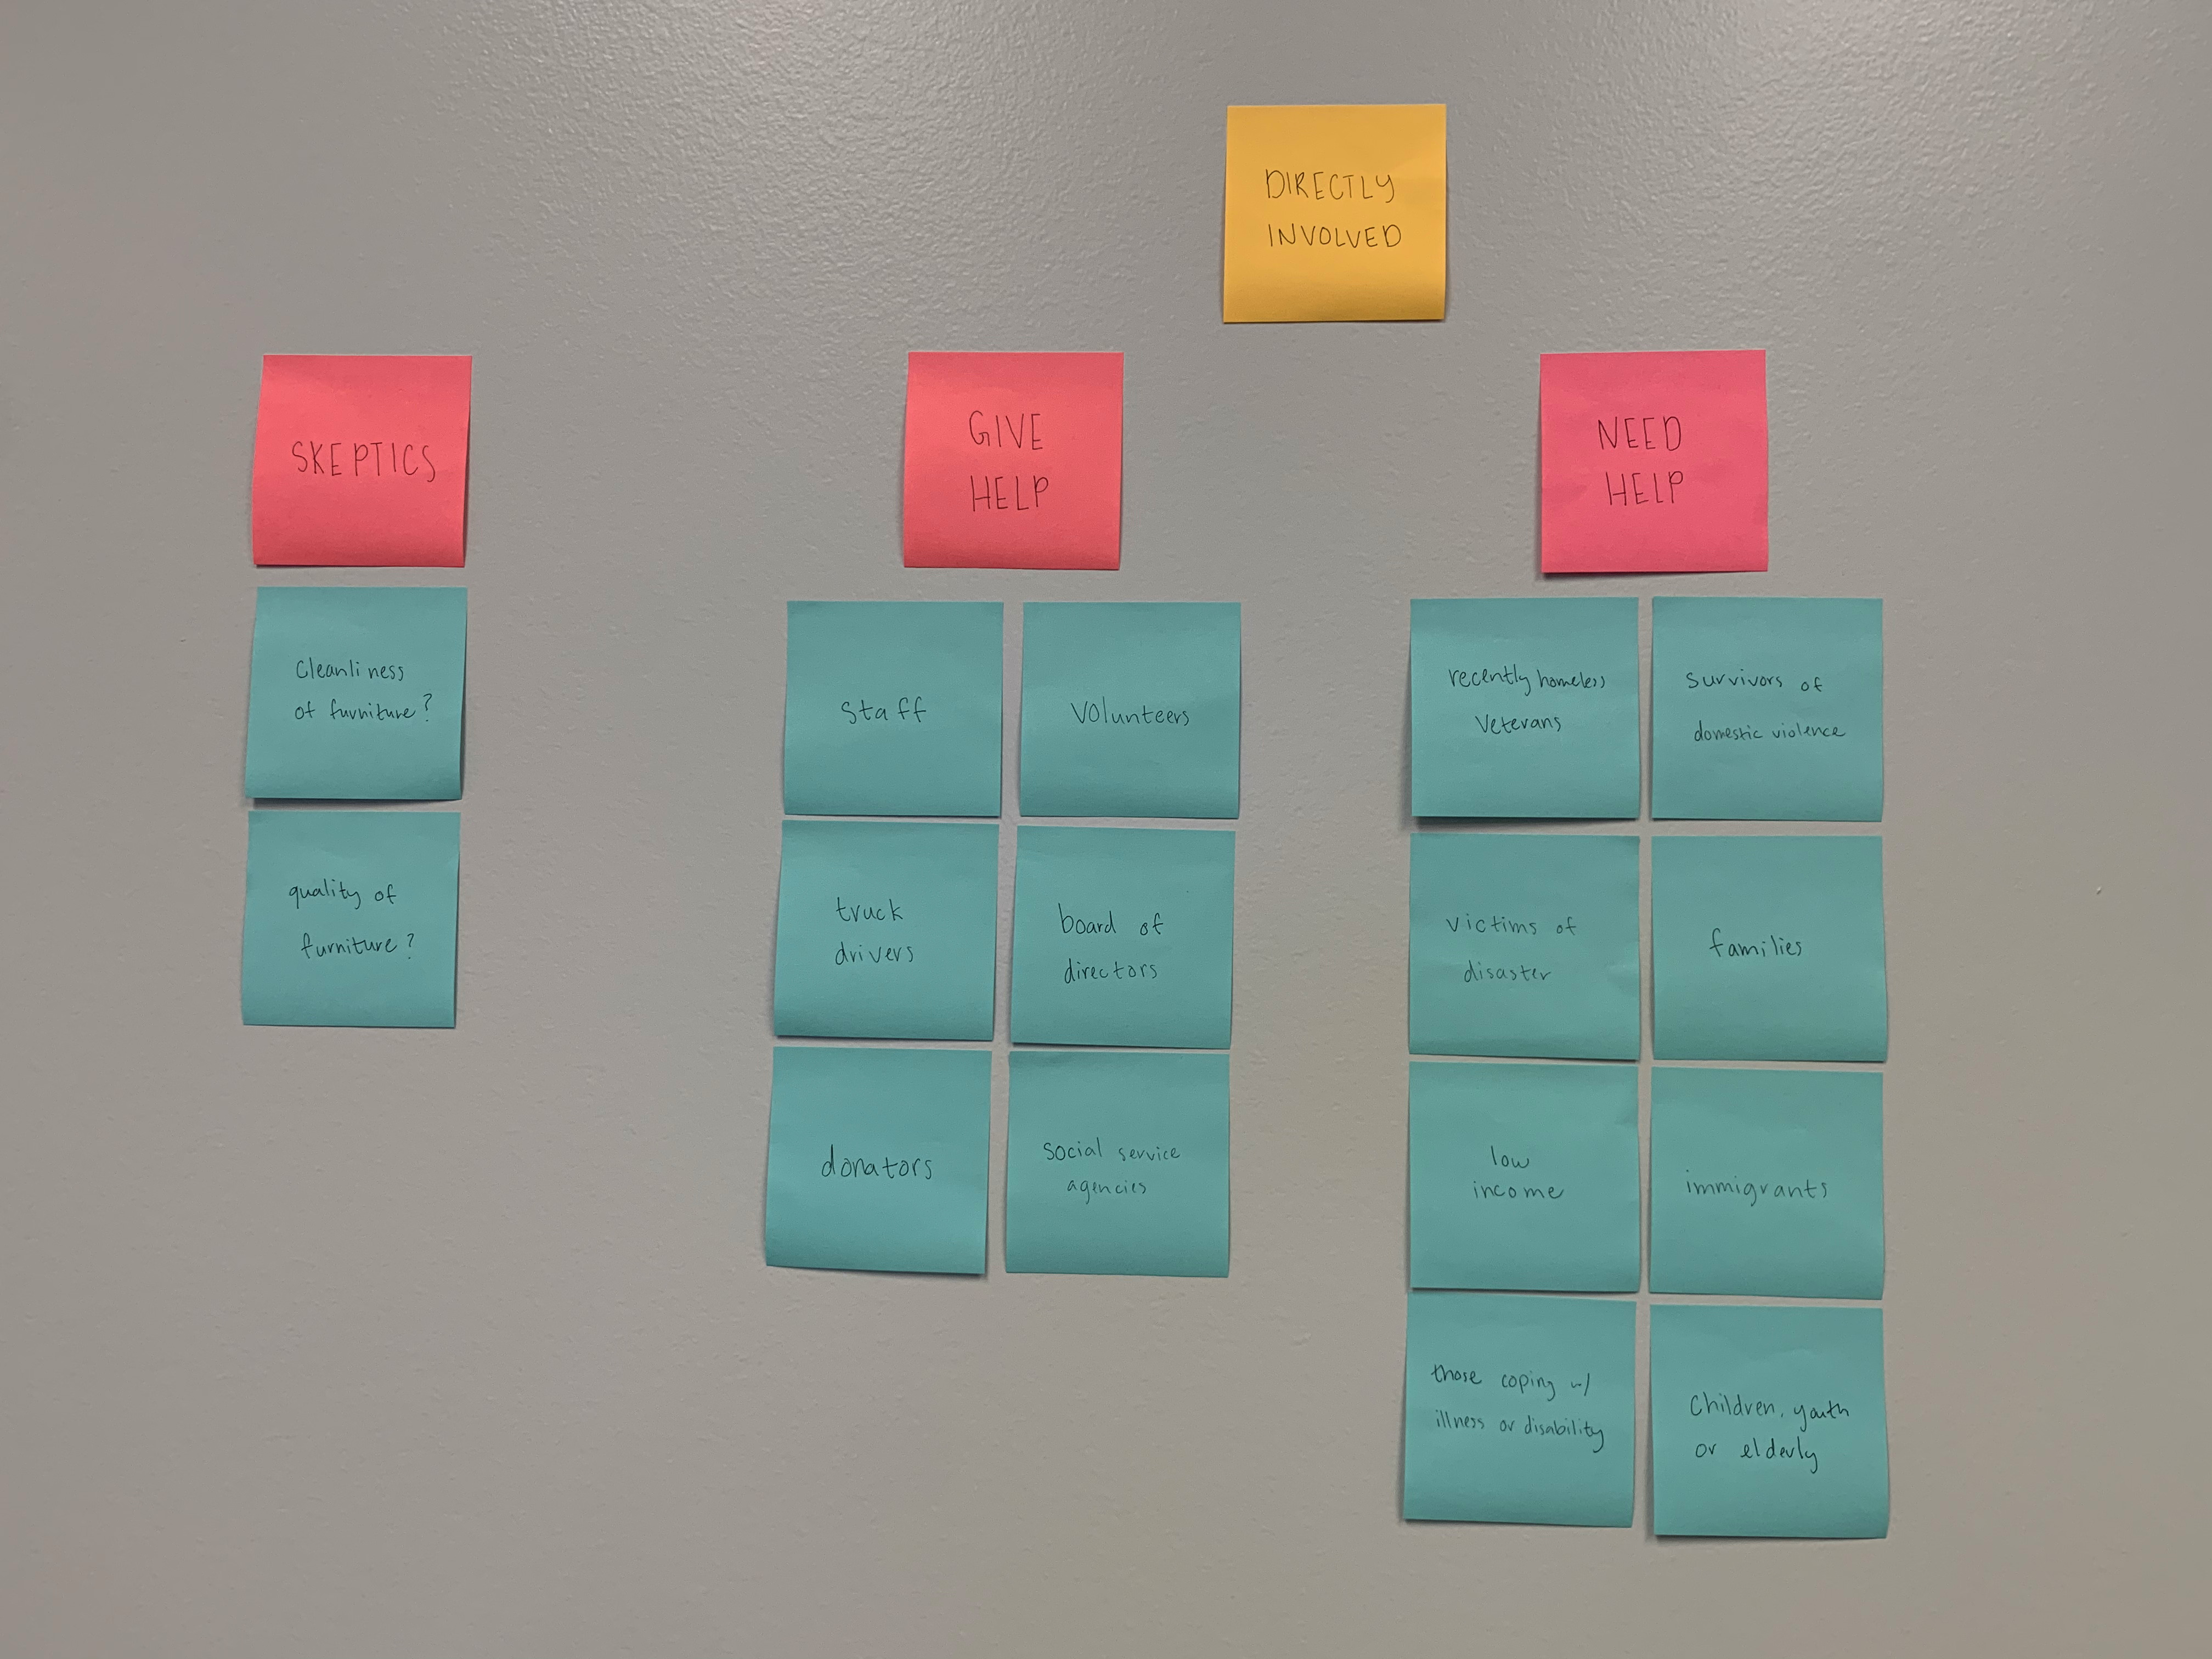 DIRECTLY
INVOLVED
SKEPTICS
Cleanliness
of furniture?
quality of
furniture?
GIVE
HELP
Staff
Volunteers
truck
drivers
board of
directors
donators
social service
agencies
NEED
HELP
recently homeless
Veterans
survivors of
domestic violence
victims of
disaster
families
low
income
immigrants
those coping w/
illness or disability
Children, youth
or elderly